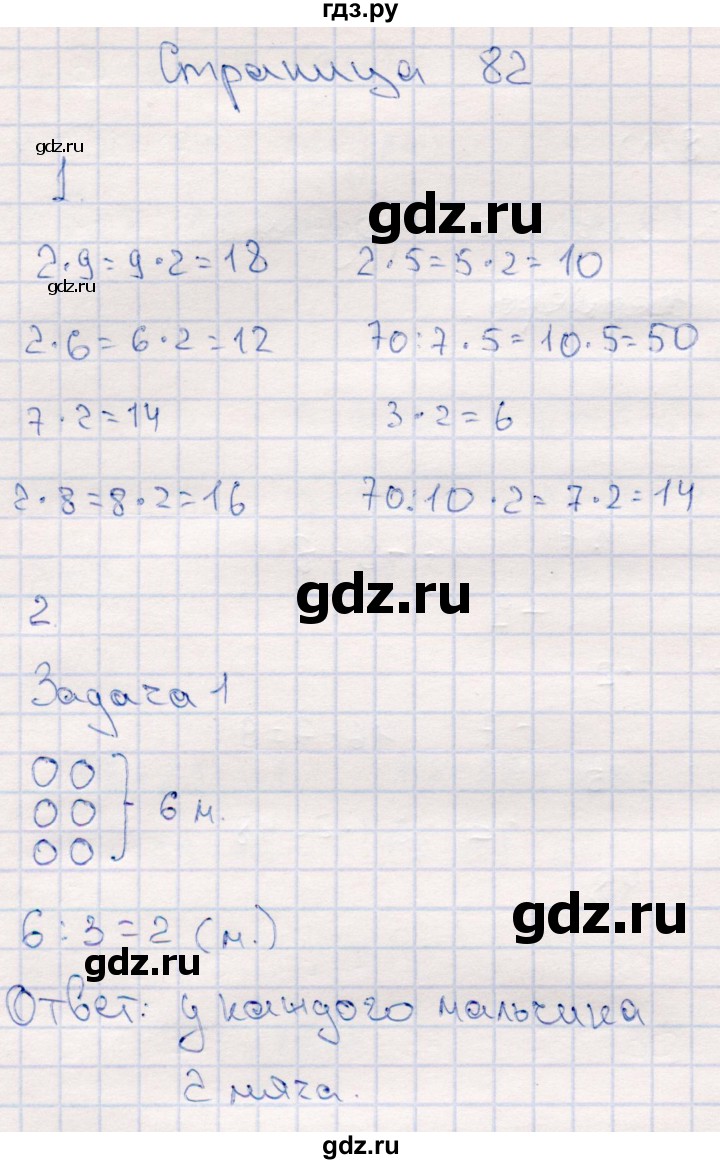 гдз.ру
Страница 82
gdz.ru
1.
gdz.ru
2·9=9·2=18 2·5=5·2=10
gdz.ru
2·6=6·2=12 70:7·5=10·5=50
7·2=14 3·2=6
2·8=8·2=16 70:10·2=7·2=14
gdz.ru
2.
Задача 1
6 м.
gdz.ru
6:3=2 (м.)
gdz.ru
Ответ: у каждого мальчика
2 мяча.
gdz.ru